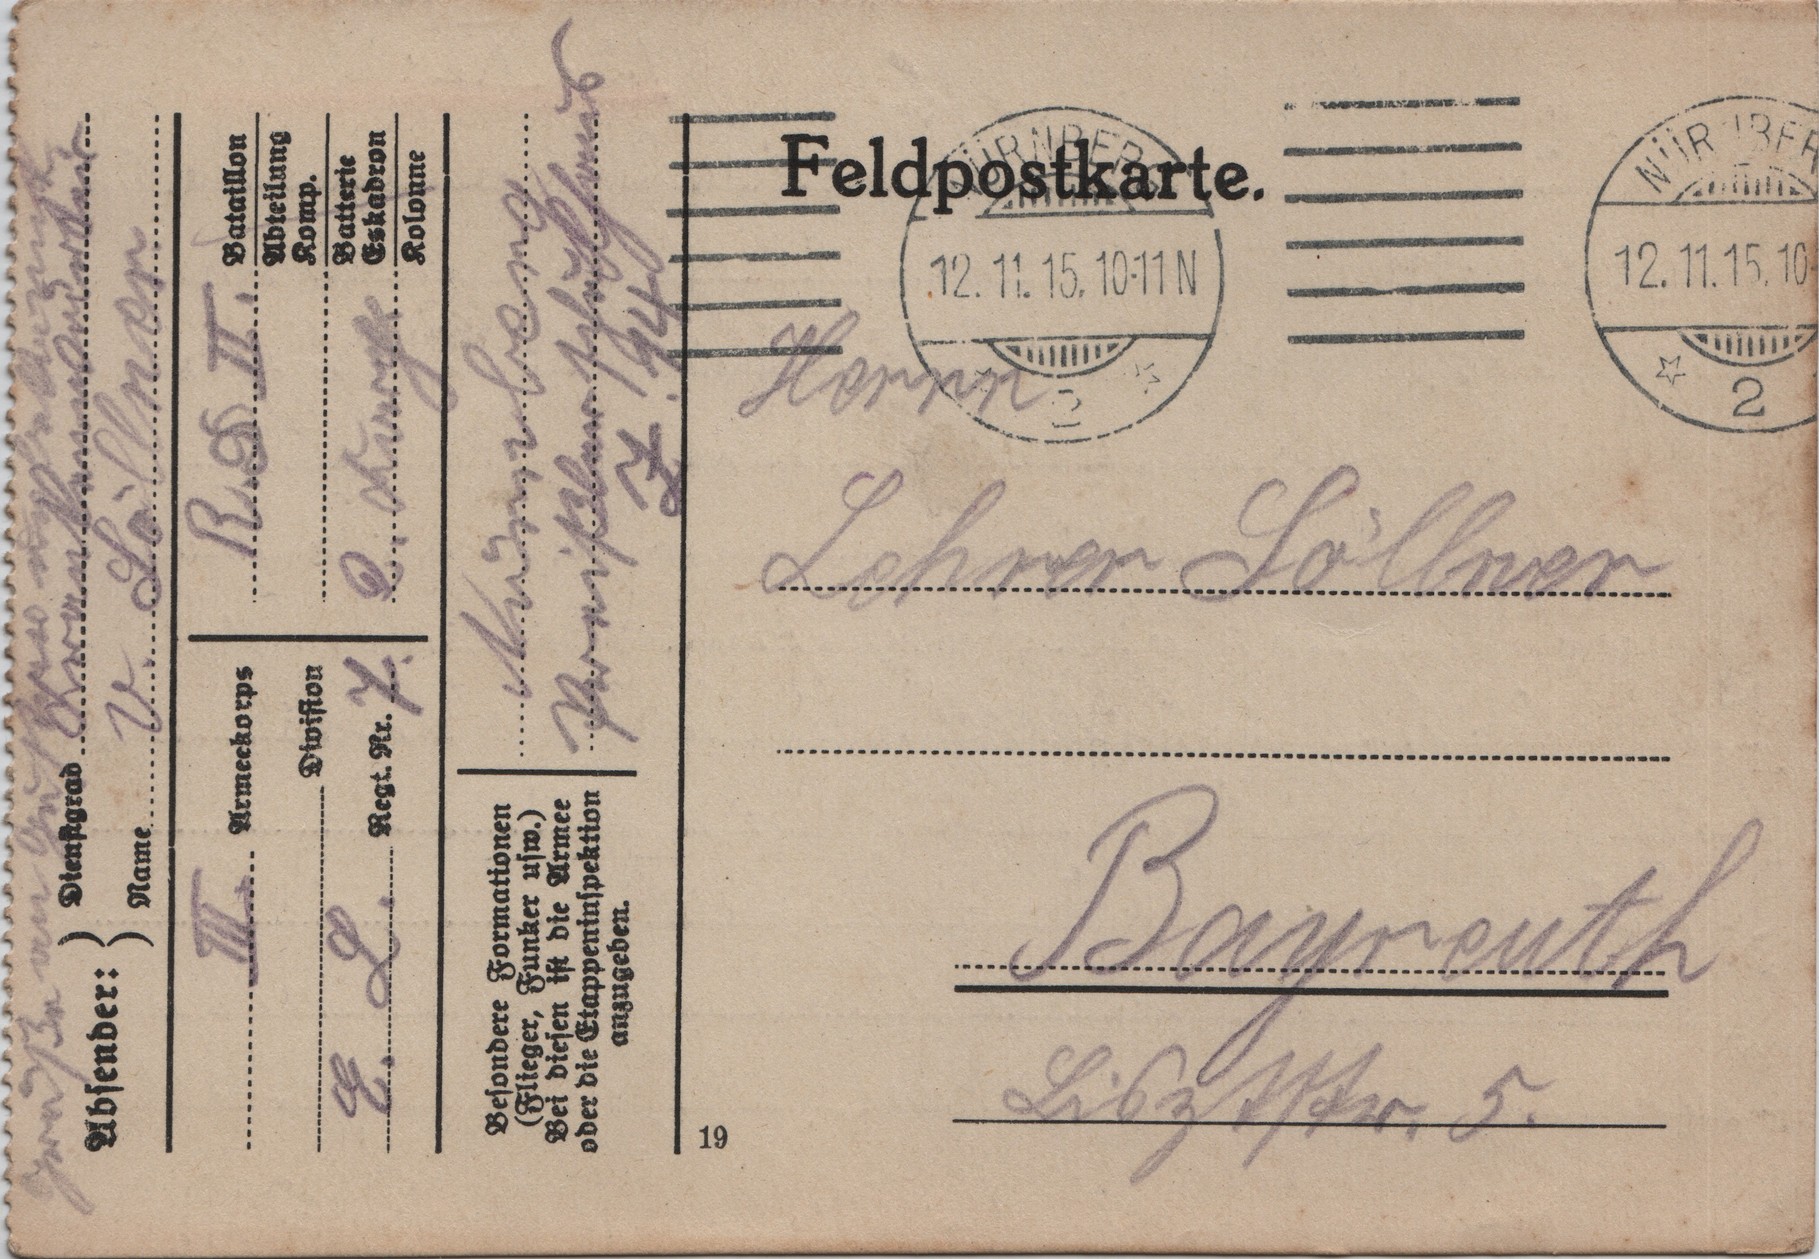 Feldpostkarte.
NÜRNBERG
12.11.15. 10-11N
2
NÜRNBER
12.11.15. 10
2
Herrn
Lehrer Söllner
Bayreuth
Lisztstr. 5.
19
Absender:
Dienstgrad
Name V. Söllner
III. Armeekorps
Division
E. L. Regt. Nr. 7.
R. D. II.
Bataillon
Abteilung
Komp.
Batterie
Eskadron
Kolonne
Besondere Formationen
(Flieger, Funker usw.)
Bei diesen ist die Armee
oder die Etappeninspektion
anzugeben.
Nürnberg
Z. 94